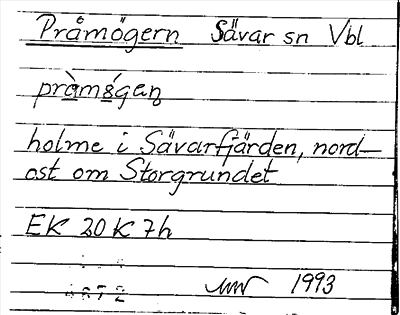 Pråmögern Sävar sn Vbl
holme i Sävarfjärden, nord-
ost om Storgrundet
EK 20 K 7h
1993